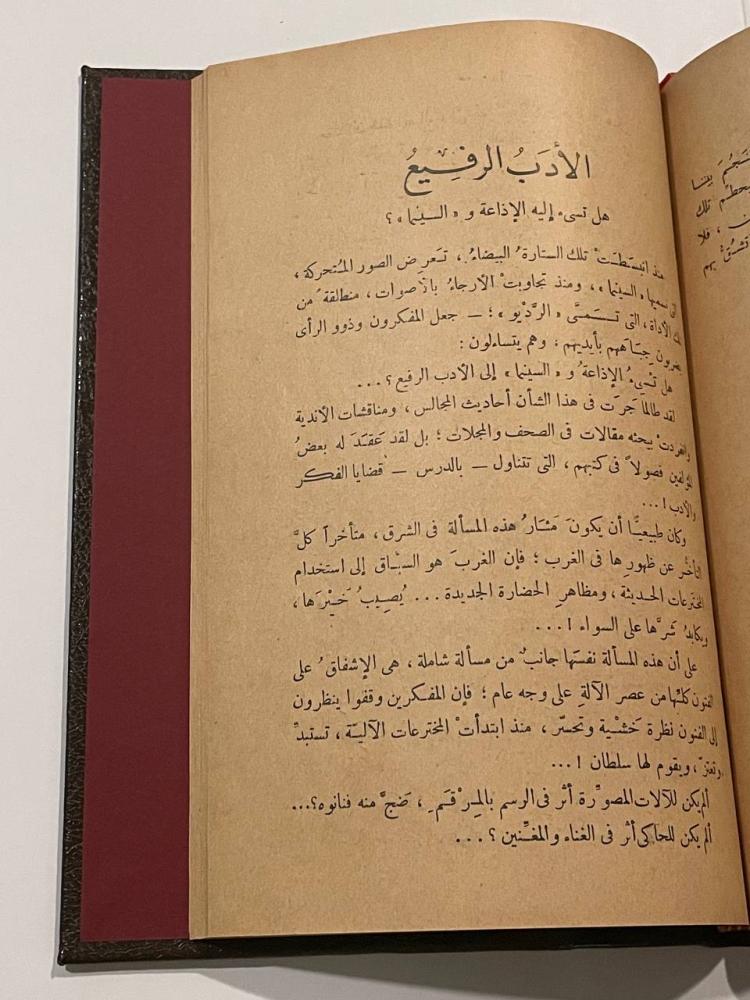 الأدَبُ الرفِيعُ
هل تسىء إليه الإذاعة و « السينما » ؟
منذ انبسَطتْ تلك الستارةُ البيضاءُ ، تَعرِض الصور المُتحركة ،
التى نسميها « السينما » ، ومنذ تجاوبتْ الأرجاءُ بالأصوات ، منطلقةً من
تلك الأداة ، التى تسَمَّى « الرَّدْيو » ؛ — جعل المفكرون وذوو الرأى
جِبَاههم بأيديهم ، وهم يتساءلون :
هل تُسىءُ الإذاعةُ و « السينما » إلى الأدب الرفيع ؟ ...
لقد طالمَا جَرَت فى هذا الشأن أحاديث المجالس ، ومناقشات الأندية
وانفردتْ ببحثه مقالات فى الصحف والمجلات ؛ بل لقد عَقَدَ له بعضُ
المؤلفين فصولاً فى كتبهم ، التى تتناول — بالدرس — قضايا الفكر
والأدب ! ...
وكان طبيعيًّا أن يكونَ مَثَارُ هذه المسألة فى الشرق ، متأخراً كلَّ
التأخُّر عن ظهورِها فى الغرب ؛ فإن الغربَ هو السبَّاق إلى استخدام
المخترعات الحديثة ، ومظاهرِ الحضارة الجديدة ... يُصِيبُ خَيْرَها ،
ويكابدُ شَرَّها على السواء ! ...
على أن هذه المسألة نفسَها جانبٌ من مسألة شاملة ، هى الإشفاقُ على
الفنون كلِّها من عصر الآلةِ على وجه عام ؛ فإن المفكرين وقفوا ينظرون
إلى الفنون نظرة خَشْية وتحسّر ، منذ ابتدأتْ المخترعات الآليّة ، تستبدّ
وتعتزّ ، ويقوم لها سلطان ! ...
ألم يكن للآلات المصوِّرة أثر فى الرسم بالمِرْقَمِ ، ضَجَّ منه فنانوه ؟ ...
ألم يكن للحاكى أثر فى الغناء والمغَنِّين ؟ ...